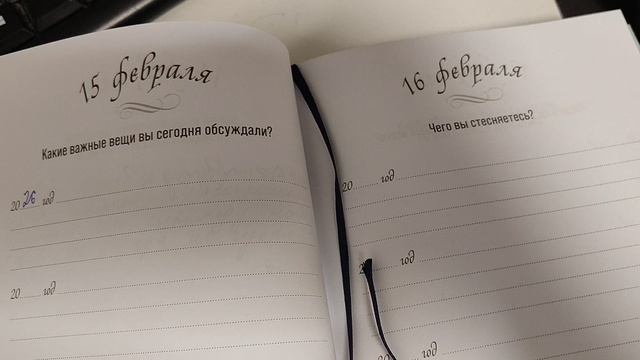 15 февраля
Какие важные вещи вы сегодня обсуждали?
2026 год
20...... год
16 февраля
Чего вы стесняетесь?
20...... год
год
20...... год